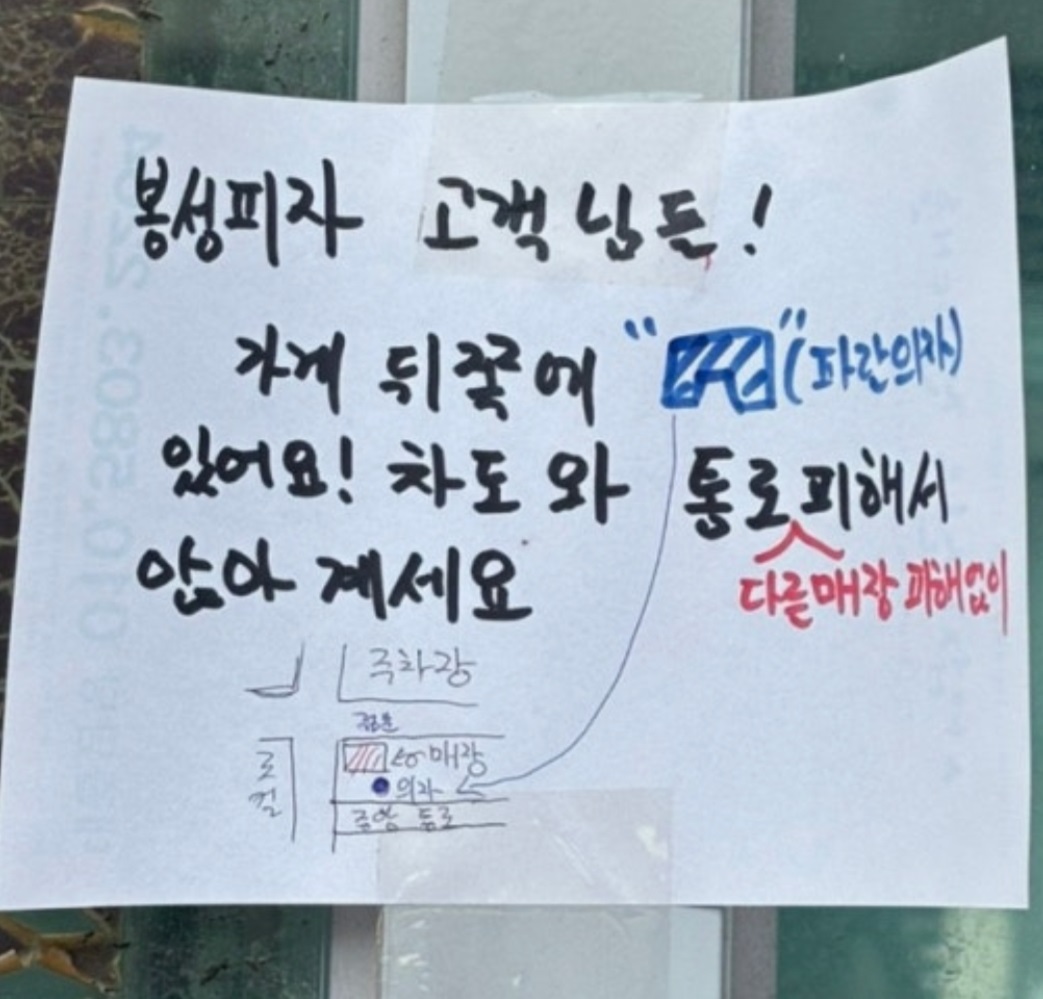 봉성피자 고객님들!
가게 뒤쪽에 " "(파란의자)
있어요! 차도와 통로피해서
다른매장 피해없이
앉아 계세요
주차장
매장
의자
로컬
중앙 통로